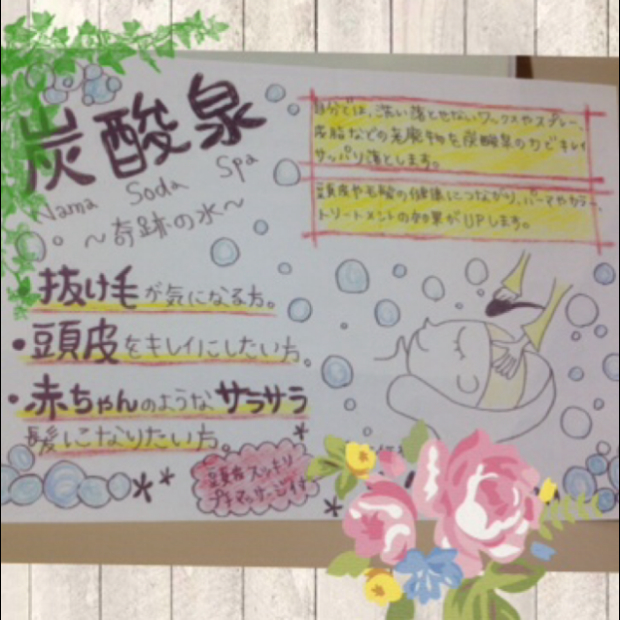 炭酸泉
Nama Soda Spa
～奇跡の水～
抜け毛が気になる方。
・頭皮をキレイにしたい方。
・赤ちゃんのようなサラサラ
髪になりたい方。
自分では、洗い落とせないワックスやスプレー、
皮脂などの老廃物を炭酸泉の力でキレイ
サッパリ落とします。
頭皮や毛髪の健康につながり、パーマやカラー、
トリートメントの効果がUPします。
頭皮スッキリ
プチマッサージ付